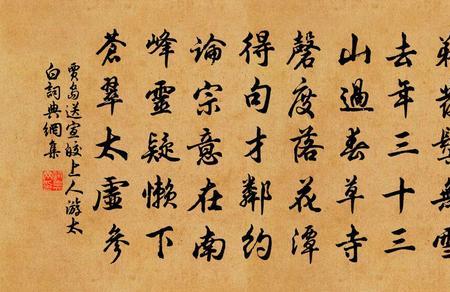 髮鬢無雪
去年三十三
山過春草寺
磬度落花潭
得句才鄰約
論宗意在南
峰靈疑懶下
蒼翠太虛參
賈島送宣皎上人游太
白詞典網集